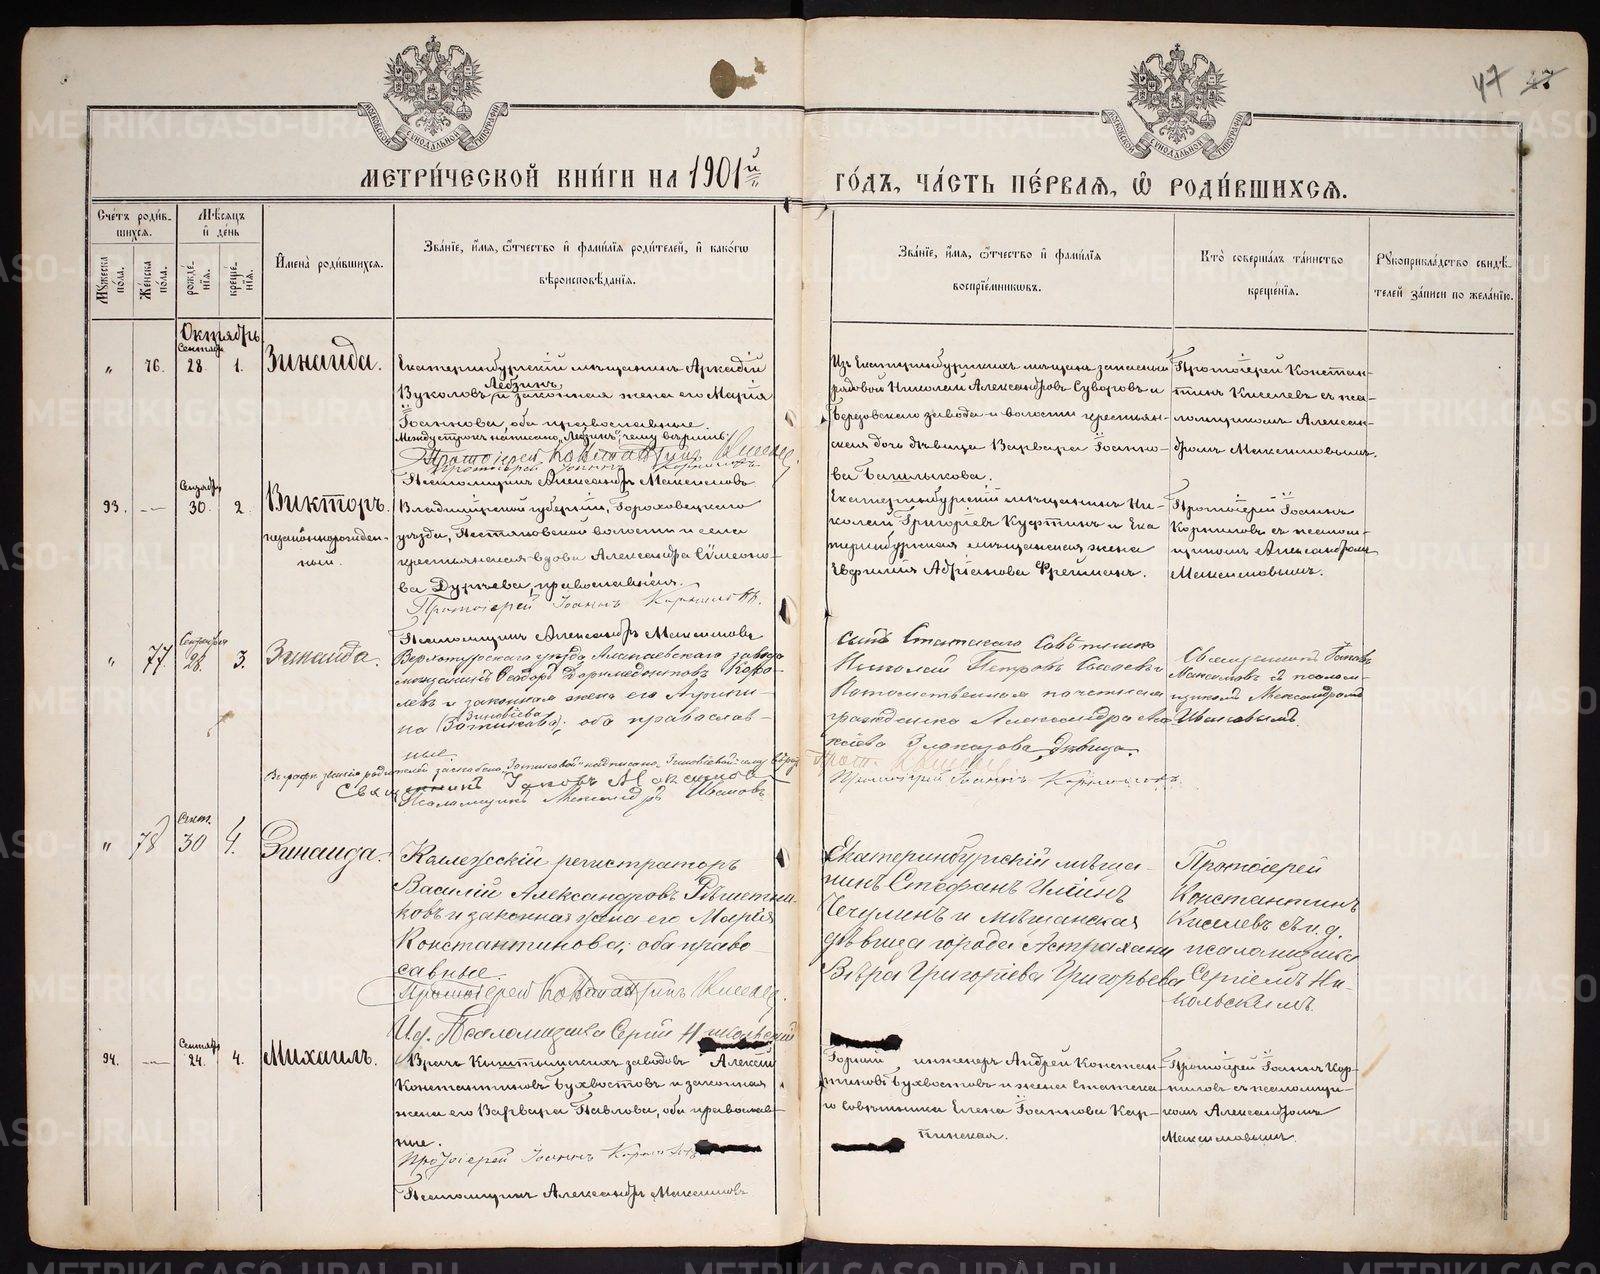 47 47
МЕТРИ́ЧЕСКОЙ КНИ́ГИ НА 1901й
ГО́ДЪ, ЧА́СТЬ ПЕ́РВАѦ, Ѡ҆ РОДИ́ВШИХСѦ.
Сче́тъ роди́в-
шихсѧ.
Мꙋ́жеска
по́ла.
Же́нска
по́ла.
Мѣ́сѧцъ
и҆ де́нь
рожде́-
нїѧ.
креще́-
нїѧ.
И҆мена̀ роди́вшихсѧ.
Зва́нїе, и҆́мѧ, ѻ҆́тчество и҆ фами́лїѧ роди́телей, и҆ како́гѡ
вѣроисповѣ́данїѧ.
Зва́нїе, и҆́мѧ, ѻ҆́тчество и҆ фами́лїѧ
воспрїе́мникѡвъ.
Кто̀ соверша́лъ та́инство
креще́нїѧ.
Рꙋкоприкла́дство свидѣ́-
телей за́писи по жела́нїю.
Октябрь
Сентябр
" 76. 28. 1. Зинаида.
Екатеринбургскій мѣщанинъ Аркадій
Ледзинъ
Вуколовъ и законная жена его Марія
Іоаннова, оба православные.
Между строкъ написано „Ледзинъ“, чему вѣримъ.
Протоіерей Константинъ Киселев
Протоіерей Іоаннъ Корниловъ
Псаломщикъ Александръ Максимовъ
Изъ Екатеринбургскихъ мѣщанъ запасный
рядовой Николай Александровъ Суворовъ и
Березовскаго завода и волости крестьян-
ская дочь дѣвица Варвара Іоанно-
ва
Протоіерей Констан-
тинъ Киселевъ съ пса-
ломщикомъ Алексан-
дромъ Максимовымъ.
Сентябр
93. — 30. 2. Викторъ.
незаконнорожден-
ный.
Владимірской губерніи, Гороховецкаго
уѣзда, волости и села
крестьянская вдова Александра Сѵмеоно-
ва Дурнева, православная.
Протоіерей Іоаннъ Корниловъ.
Псаломщикъ Александръ Максимовъ
Екатеринбургскій мѣщанинъ Ни-
колай Григоріевъ Куфтинъ и Ека
теринбургская мѣщанская жена
Евфимія Адріанова Фрейманъ.
Протоіерей Іоаннъ
Корниловъ съ псалом-
щикомъ Александромъ
Максимовымъ.
Сентября
" 77. 28. 3. Зинаида.
Верхотурскаго уѣзда Алапаевскаго завода
мѣщанинъ Ѳеодоръ Дормедонтовъ Коро-
левъ и законная жена его Агрипи-
Зиновіева
на ; оба православ-
ные.
Священникъ Іаковъ Максимовъ
Псаломщикъ Александръ Ивановъ
сынъ Статскаго Совѣтника
Николай Петровъ и
Потомственная почетная
гражданка Александра
Злоказова дѣвица.
Прот. Киселев
Протоіерей Іоаннъ Корниловъ.
Священникъ Іаковъ
Максимовъ съ псалом-
щикомъ Александромъ
Ивановымъ.
Сент.
" 78 30 4. Зинаида.
Коллежскій регистраторъ
Василій Александровъ Рѣшетни-
ковъ и законная жена его Марія
Константинова; оба право-
савные.
Протоіерей Константинъ Киселев.
И.д. Псаломщика Сергій Никольскій
Екатеринбургскій мѣща-
нинъ Стефанъ Илiинъ
Чечулинъ и мѣщанская
дѣвица города Астрахани
Вѣра Григоріева Григорьева
Протоіерей
Константинъ
Киселевъ съ и.д.
псаломщика
Сергіемъ Ни-
кольскимъ.
Сентябр
94. — 24. 4. Михаилъ.
Врачъ Кыштымскихъ заводовъ Алексій
Константиновъ Бухвостовъ и законная
жена его Варвара Павлова, оба православ-
ные.
Протоіерей Іоаннъ Корниловъ
Псаломщикъ Александръ Максимовъ
Горный инженеръ Андрей Констан-
тиновъ Бухвостовъ и жена Статска-
го Совѣтника Елена Іоаннова Кар-
пинская.
Протоіерей Іоаннъ Кор-
ниловъ съ псаломщи-
комъ Александромъ
Максимовымъ.